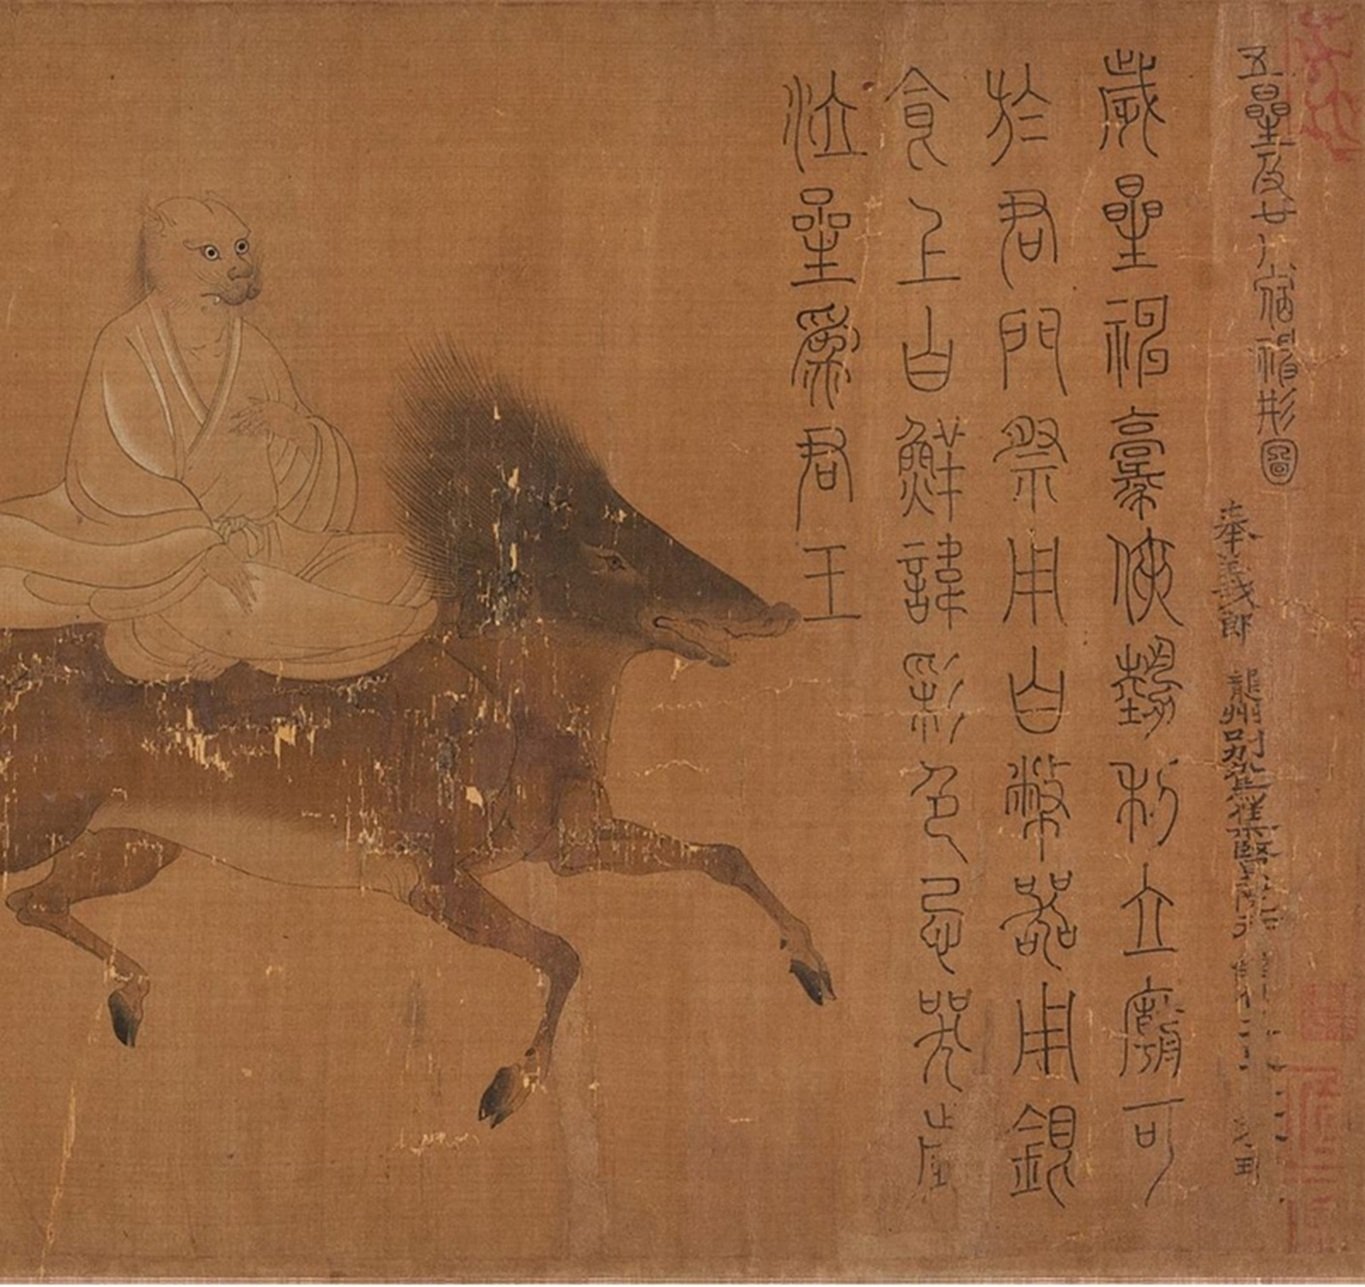 五星及廿八宿神形圖
奉義郎 龍州別駕集賢院待
歲星神豪俠勢利立廟可
於君門祭用白幣器用銀
食上白鮮諱彩色忌哭
泣星爲君王